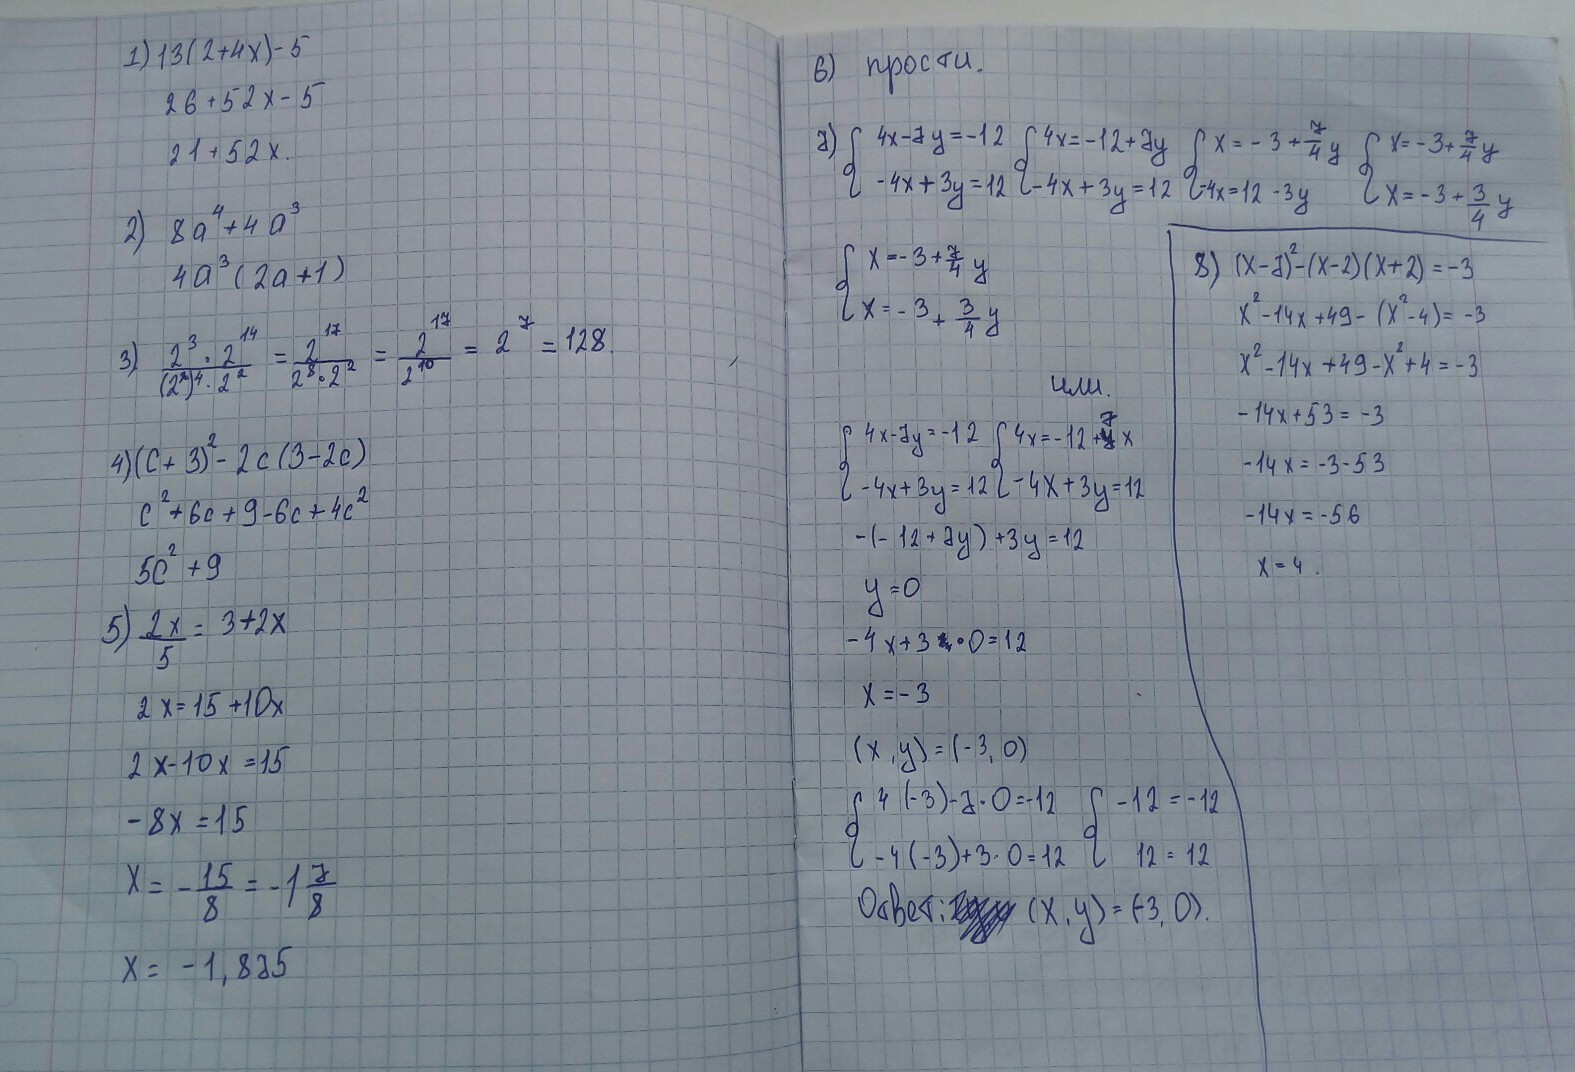 1) 13(2+4x)-5
26+52x-5
21+52x.
2) 8a⁴+4a³
4a³(2a+1)
3) 2³·2¹⁴/(2²)⁴·2² = 2¹⁷/2⁸·2² = 2¹⁷/2¹⁰ = 2⁷ = 128.
4) (c+3)²-2c(3-2c)
c²+6c+9-6c+4c²
5c²+9
5) 2x/5 = 3+2x
2x=15+10x
2x-10x=15
-8x=15
x = -15/8 = -1 7/8
x = -1,875
6) прости.
7) { 4x-7y=-12 { 4x=-12+7y { x=-3+7/4y { x=-3+7/4y
-4x+3y=12 -4x+3y=12 -4x=12-3y x=-3+3/4y
{ x=-3+7/4y
x=-3+3/4y
или.
{ 4x-7y=-12 { 4x=-12+7x
-4x+3y=12 -4x+3y=12
-(-12+7y)+3y=12
y=0
-4x+3·0=12
x=-3
(x,y)=(-3,0)
{ 4(-3)-7·0=-12 { -12=-12
-4(-3)+3·0=12 12=12
Ответ: (x,y)=(-3,0).
8) (x-7)²-(x-2)(x+2)=-3
x²-14x+49-(x²-4)=-3
x²-14x+49-x²+4=-3
-14x+53=-3
-14x=-3-53
-14x=-56
x=4.